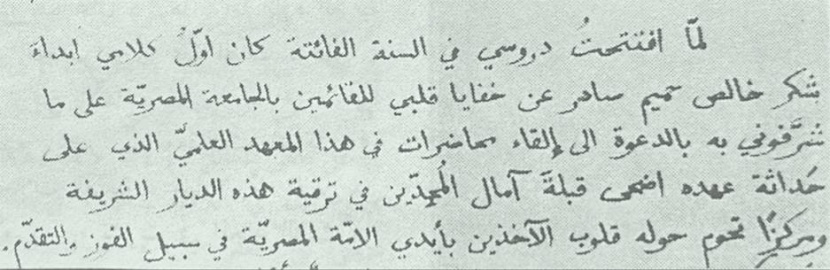 لمّا افتتحتُ دروسي في السنة الفائتة كان اوّلُ كلامي ابداءَ
شكر خالص صميم صادر عن خفايا قلبي للقائمين بالجامعة المصريّة على ما
شرّفوني به بالدعوة الى إلقاء محاضرات في هذا المعهد العلميّ الذي على
حَداثة عهده اضحى قبلةَ آمال المُجِدّين في ترقية هذه الديار الشريفة
ومركزًا تحوم حوله قلوب الآخذين بأيدي الامّة المصريّة في سبيل الفوز والتقدّم.